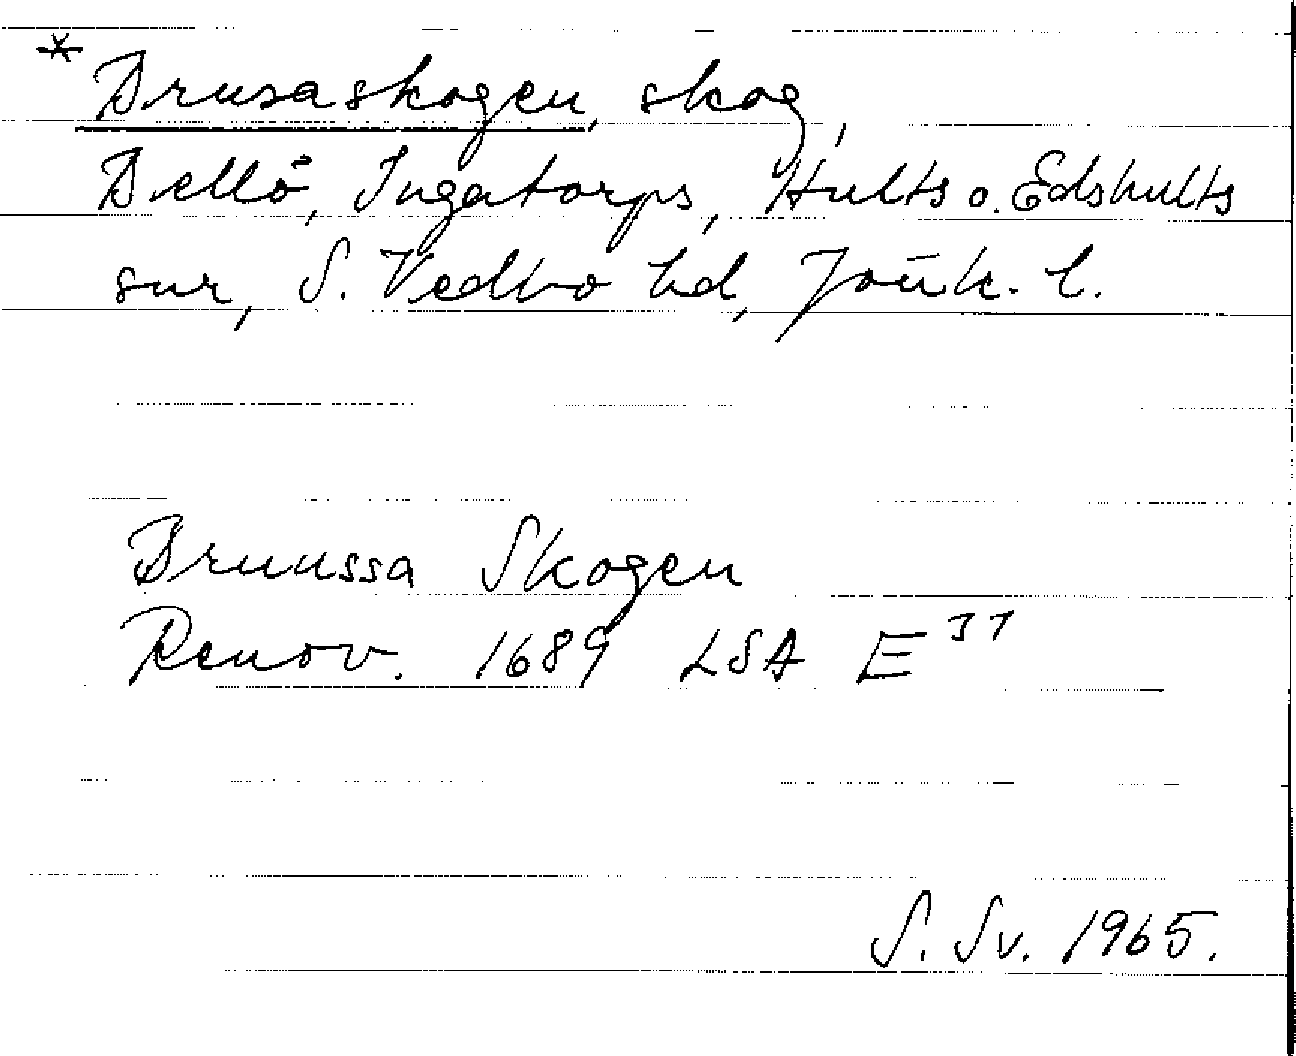 * Brusaskogen, skog,
Bellö, Ingatorps, Hults o. Edshults
snr, S. Vedbo hd, Jönk. l.
Bruussa Skogen
Renov. 1689 LSA E 37
S. Sv. 1965.